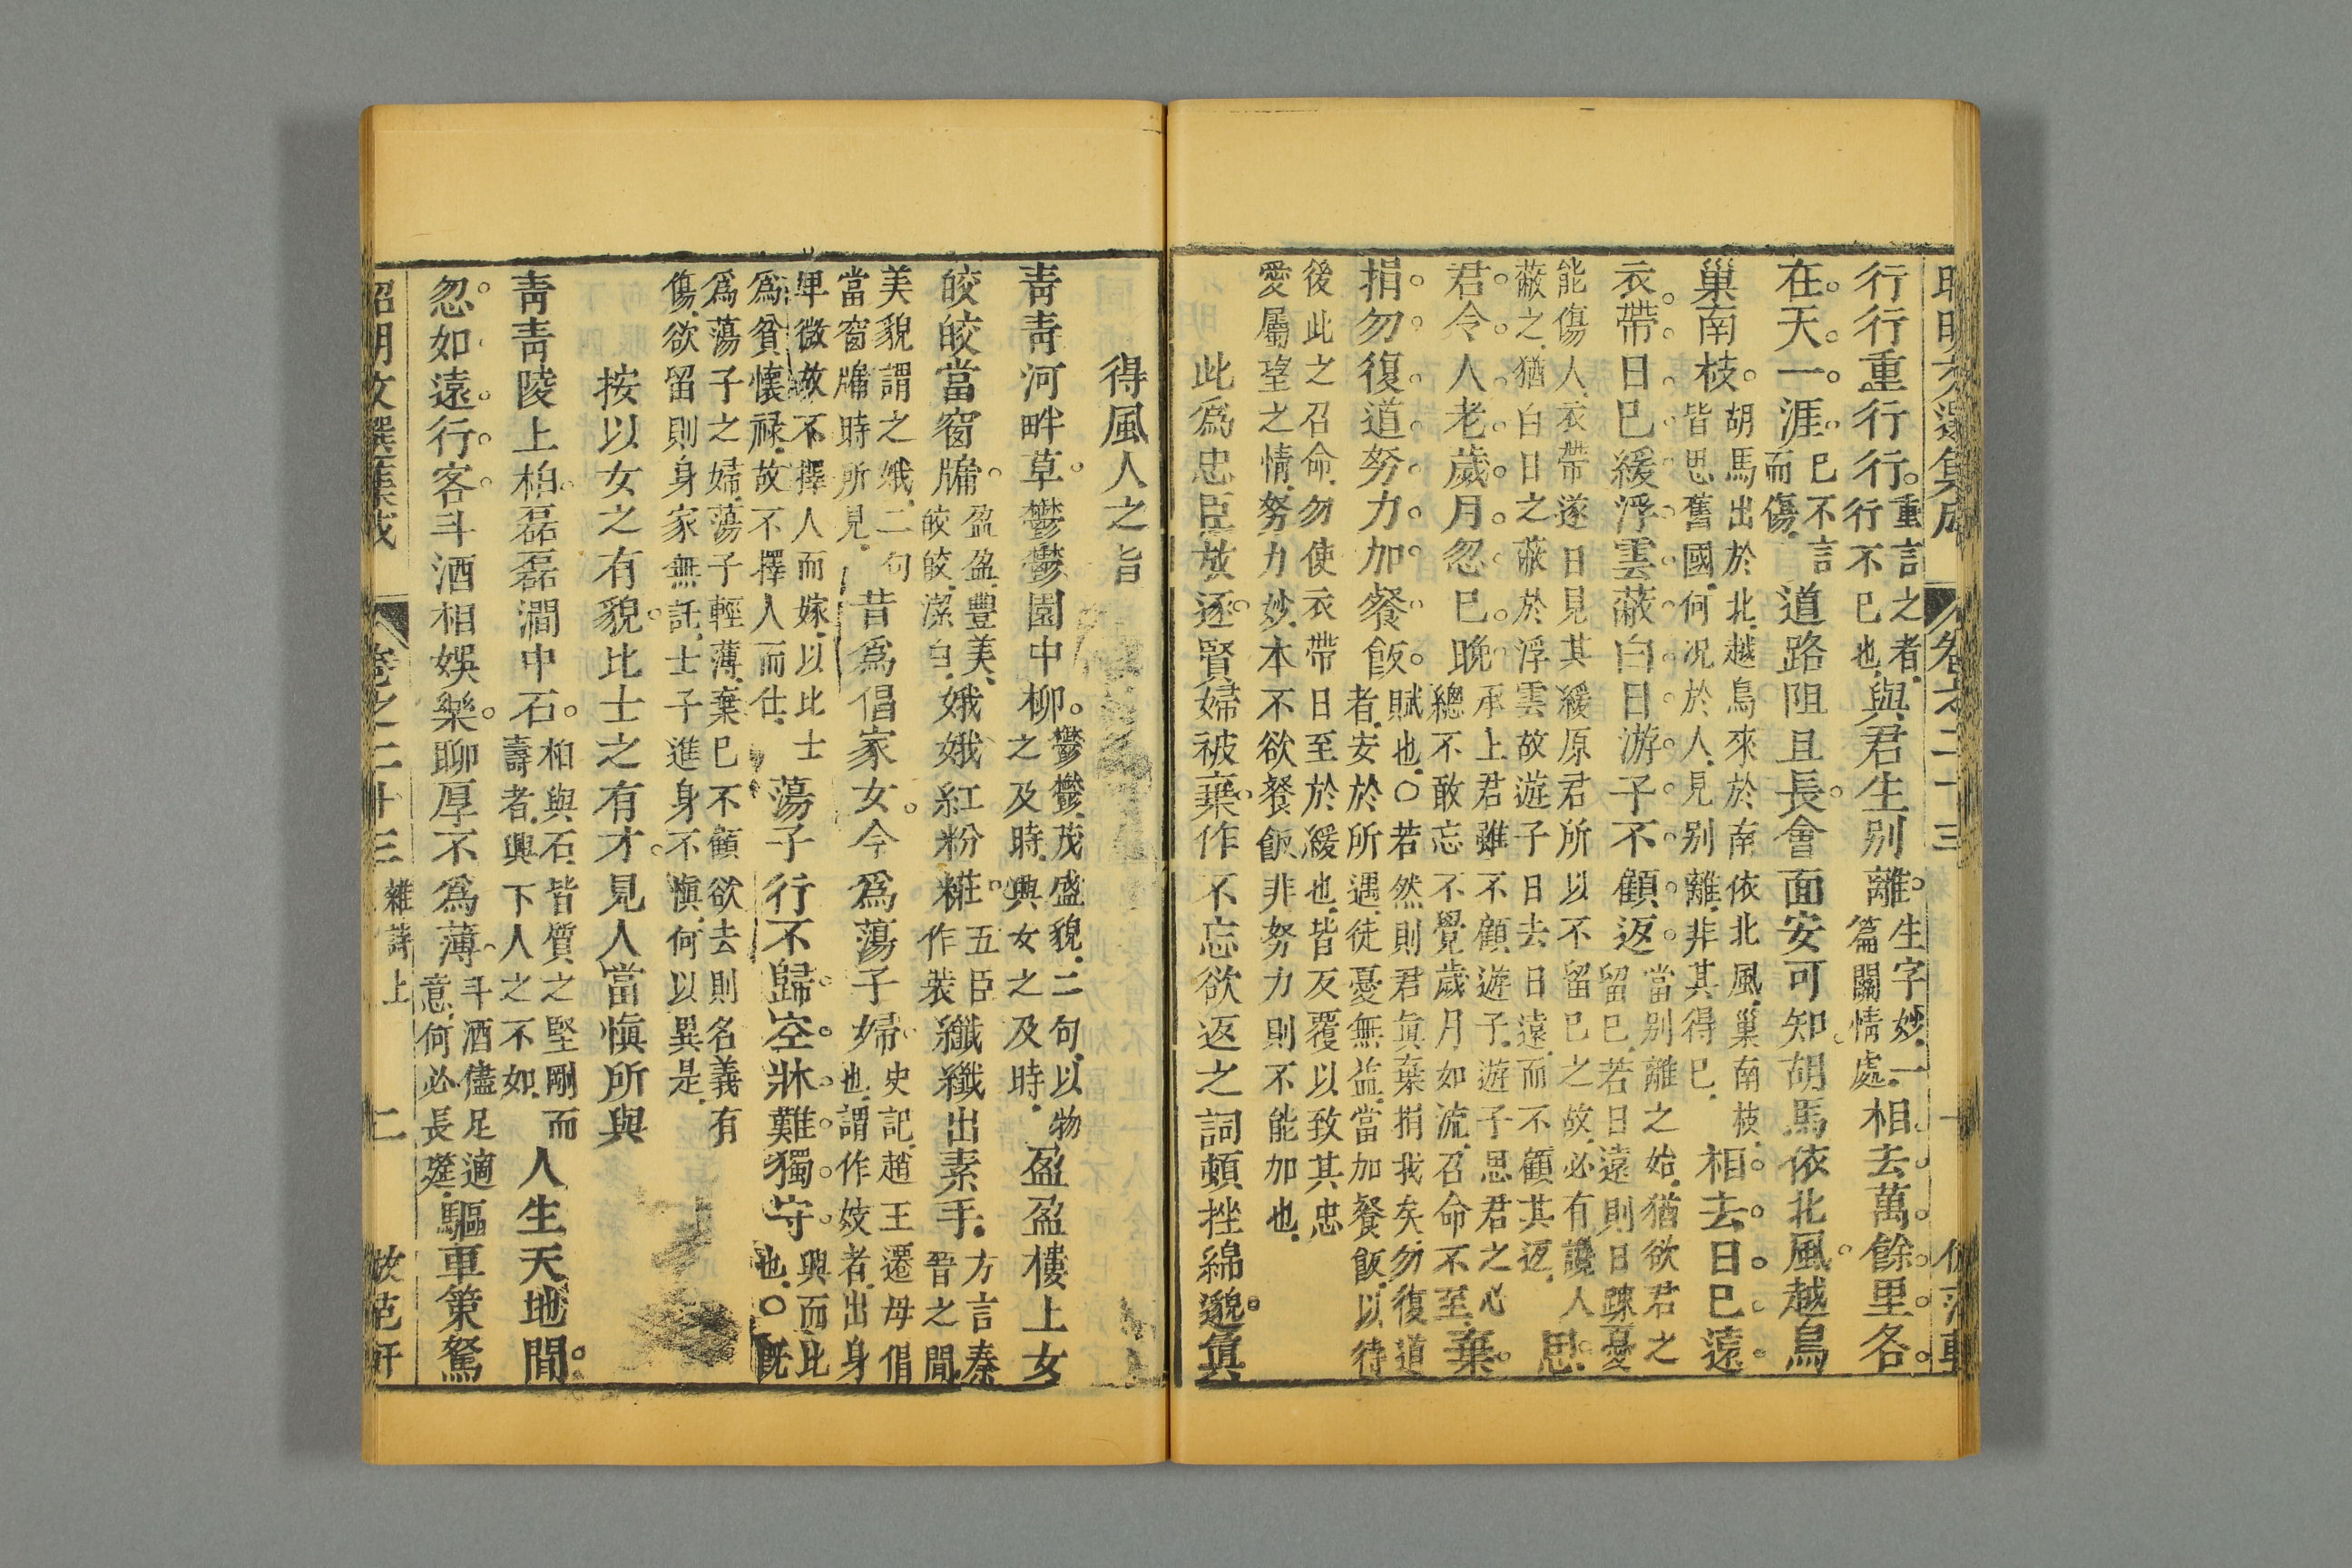 昭明文選集成 卷之二十三 一
行行重行行重言之者行不已也與君生別離生字妙一篇關情處相去萬餘里各
在天一涯已不言而傷道路阻且長會面安可知胡馬依北風越鳥
巢南枝胡馬出於北越鳥來於南依北風巢南枝皆思舊國何况於人見別離非其得已相去日已遠
衣帶日已緩浮雲蔽白日游子不顧返當別離之始猶欲君之留已若日遠則日踈憂
能傷人衣帶遂日見其緩原君所以不留已之故必有讒人蔽之猶白日之蔽於浮雲故遊子日去日遠而不顧其返思
君令人老歲月忽已晚承上君雖不顧遊子遊子思君之心總不敢忘不覺歲月如流召命不至棄
捐勿復道努力加餐飯賦也○若然則君眞棄捐我矣勿復道者安於所遇徒憂無益當加餐飯以待
後此之召命勿使衣帶日至於緩也皆反覆以致其忠愛屬望之情努力妙本不欲餐飯非努力則不能加也
此爲忠臣放逐賢婦被棄作不忘欲返之詞頓挫綿邈眞
得風人之旨
靑靑河畔草鬱鬱園中柳鬱鬱茂盛貌二句以物之及時興女之及時盈盈樓上女
皎皎當窗牖盈盈豐美皎皎潔白娥娥紅粉粧五臣作裝纖纖出素手方言秦晉之間
美貌謂之娥二句當窗牖時所見昔爲倡家女今爲蕩子婦史記趙王遷母倡也謂作妓者出身
卑微故不擇人而嫁以比士爲貧懷祿故不擇人而仕蕩子行不歸空牀難獨守興而比也○旣
爲蕩子之婦蕩子輕薄棄已不顧欲去則名義有傷欲留則身家無託士子進身不愼何以異是
按以女之有貌比士之有才見人當愼所與
靑靑陵上柏磊磊澗中石柏與石皆質之堅剛而壽者興下人之不如人生天地間
忽如遠行客斗酒相娛樂聊厚不爲薄斗酒儘足適意何必長筵驅車策駑
昭明文選集成 卷之二十三 雜詩上 二